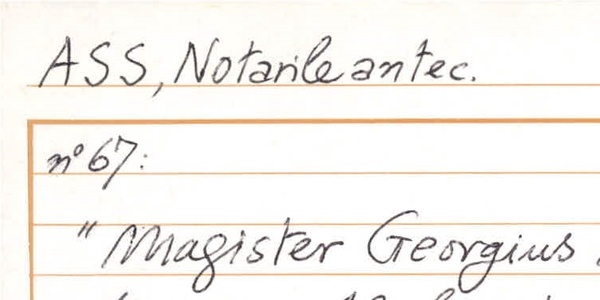 ASS, Notarile antec.
n° 67:
"Magister Georgius